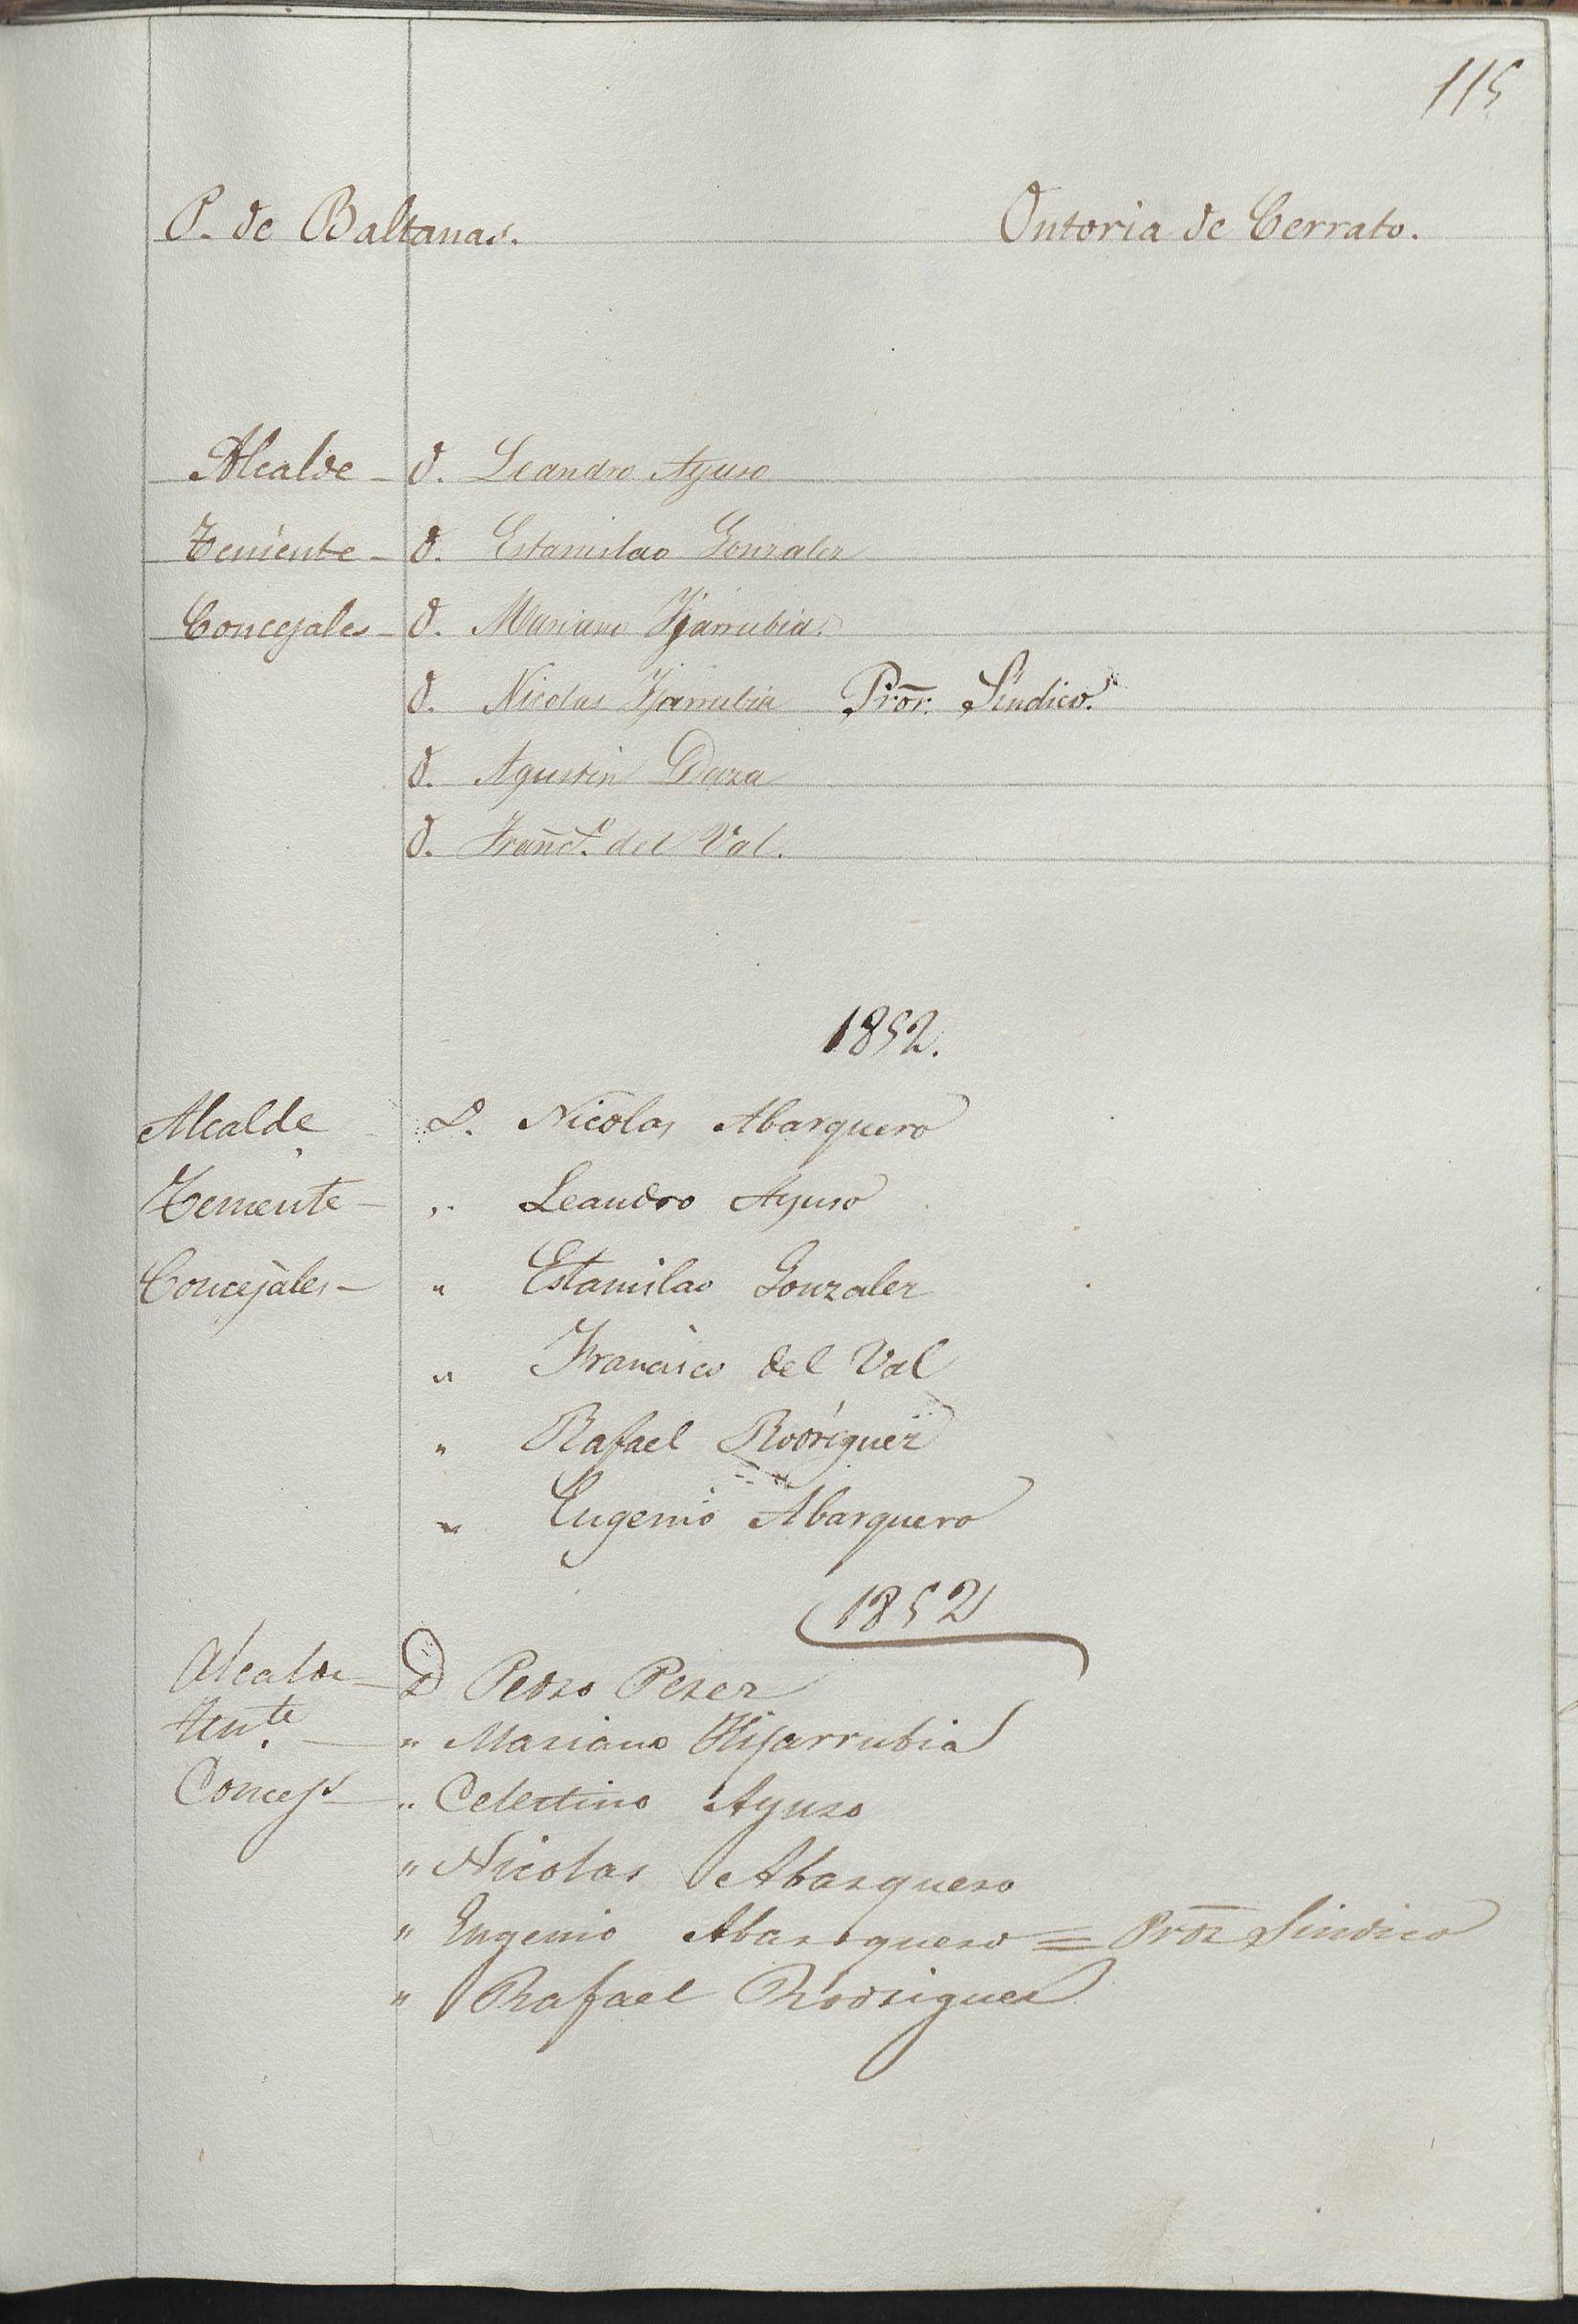 115
P. de Baltanas. Ontoria de Cerrato.
Alcalde - D. Leandro Ayuso
Teniente - D. Estanislao Gonzalez
Concejales - D. Mariano Yjarrubia.
D. Nicolas Yjarrubia Pror. Sindico.
D. Agustin Daza
D. Franco. del Val.
1852.
Alcalde D. Nicolas Abarquero
Teniente - " Leandro Ayuso
Concejales - " Estanislao Gonzalez
" Francisco del Val
" Rafael Rodriguez
" Eugenio Abarquero
1852
Alcalde D Pedro Perez
Tente. " Mariano Hijarrubia
Concejs " Celestino Ayuso
" Nicolas Abarquero
" Eugenio Abarquero = Pror Sindico
" Rafael Rodriguez